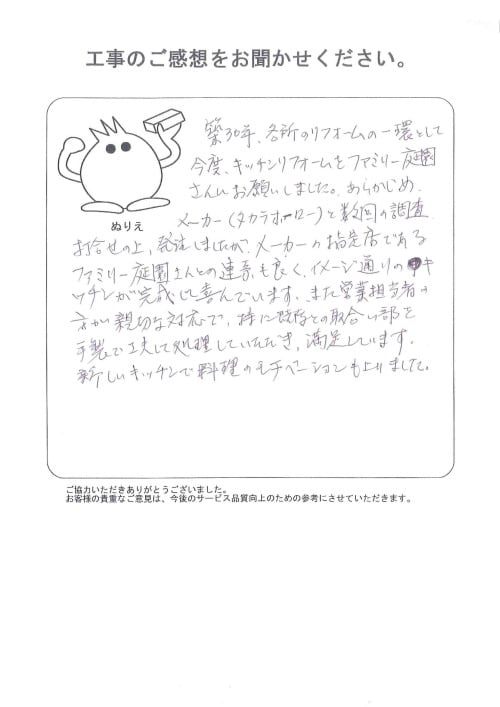 工事のご感想をお聞かせください。
築30年、各所のリフォームの一環として
今度、キッチンリフォームをファミリー庭園
さんにお願いしました。あらかじめ、
ぬりえ
メーカー(タカラホーロー)と数回の調査
打合せの上、発注しましたが、メーカーの指定店である
ファミリー庭園さんとの連携も良く、イメージ通りのキ
ッチンが完成し喜んでいます。また営業担当者の
方が親切な対応で、特に既存との取合い部を
手製で工夫して処理していただき、満足しています。
新しいキッチンで料理のモチベーションも上りました。
ご協力いただきありがとうございました。
お客様の貴重なご意見は、今後のサービス品質向上のための参考にさせていただきます。